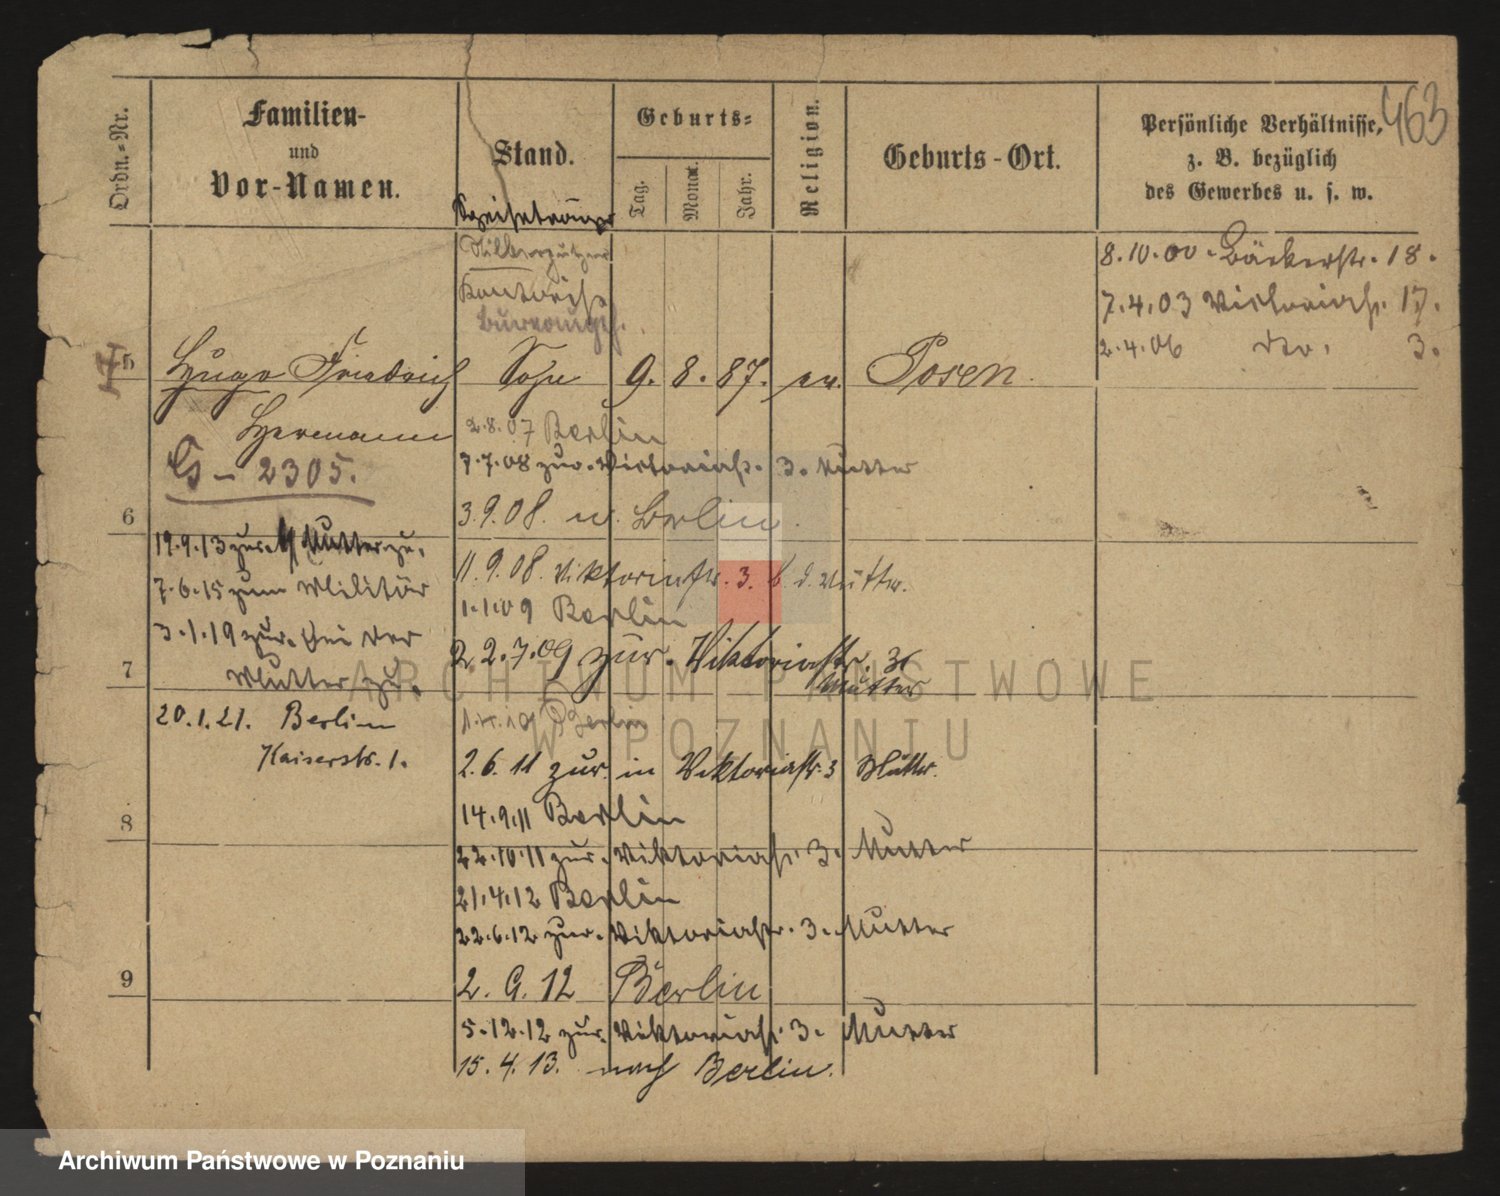 463
Ordn.-Nr.
Familien-
und
Vor-Namen.
Stand.
Geburts-
Tag.
Monat.
Jahr.
Religion.
Geburts-Ort.
Persönliche Verhältnisse,
z. B. bezüglich
des Gewerbes u. s. w.
Silberputzer
8.10.00. Bäckerstr. 18.
7.4.03 Victoriastr. 17.
2.4.06 do. 3.
5 Hugo Friedrich Sohn 9. 8. 87. ev. Posen
Hermann
2.8.07 Berlin
G - 2305.
7.7.08 zur. Victoriastr. 3. Mutter
6
3.9.08. n. Berlin.
19.9.13 zur. Mutter zu.
11.9.08. Viktoriastr. 3. b. d. Mutter.
7.6.15 zum Militär
1.1.09 Berlin
3.1.19 zur. bei der
Mutter zu.
7
2.7.09 zur. Viktoriastr. 3
Mutter
20.1.21. Berlin
Kaiserstr. 1.
Berlin
2.6.11 zur. in Viktoriastr. 3 Mutter.
8
14.9.11 Berlin
22.10.11 zur. Viktoriastr. 3. Mutter
21.4.12 Berlin
22.6.12 zur. Viktoriastr. 3. Mutter
9
2. 9. 12 Berlin
5.12.12 zur. Viktoriastr. 3. Mutter
15. 4. 13. nach Berlin.
ARCHIWUM PAŃSTWOWE
W POZNANIU
Archiwum Państwowe w Poznaniu